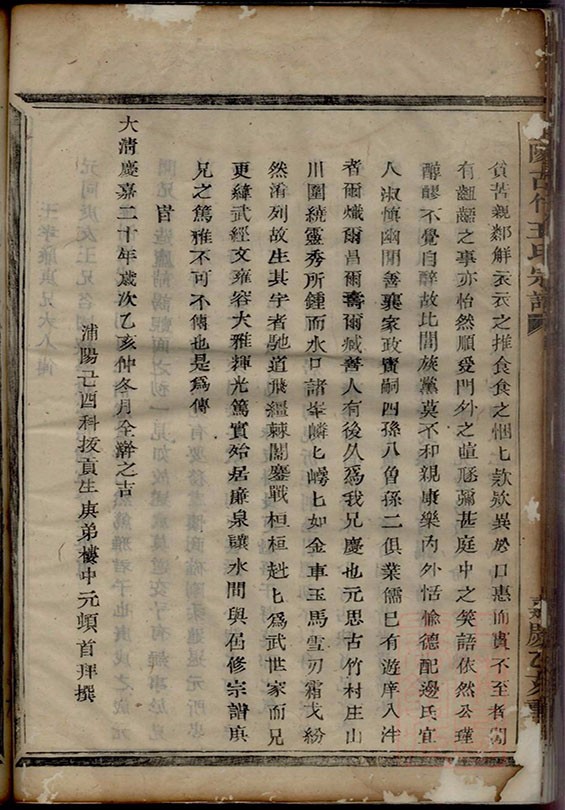 貧苦親鄰解衣衣之推食食之悃匕欵欵異於口惠而實不至者間
有齟齬之事亦怡然順受門外之喧豗彌甚庭中之笑語依然公瑾
醇醪不覺自醉故比閭族黨莫不和親康樂內外恬愉德配邊氏宜
人淑慎幽閒善襄家政實嗣四孫八曾孫二俱業儒已有遊庠入泮
者爾熾爾昌爾壽爾臧善人有後久爲我兄慶也元思古竹村庄山
川圍繞靈秀所鍾而水口諸峯嶙匕嶀匕如金車玉馬雪刃霜戈紛
然淆列故生其宇者馳道飛繮棘闈鏖戰桓桓赳匕爲武世家而兄
更緯武經文雍容大雅輝光篤實始居廉泉讓水間與
修宗譜
兄之篤雅不可不傳也是爲傳
旹
大清慶嘉二十年歲次乙亥仲冬月全澣之吉
浦陽己酉科拔貢生庚弟樓中元頓首拜撰
陽古竹王氏宗譜
嘉慶乙亥